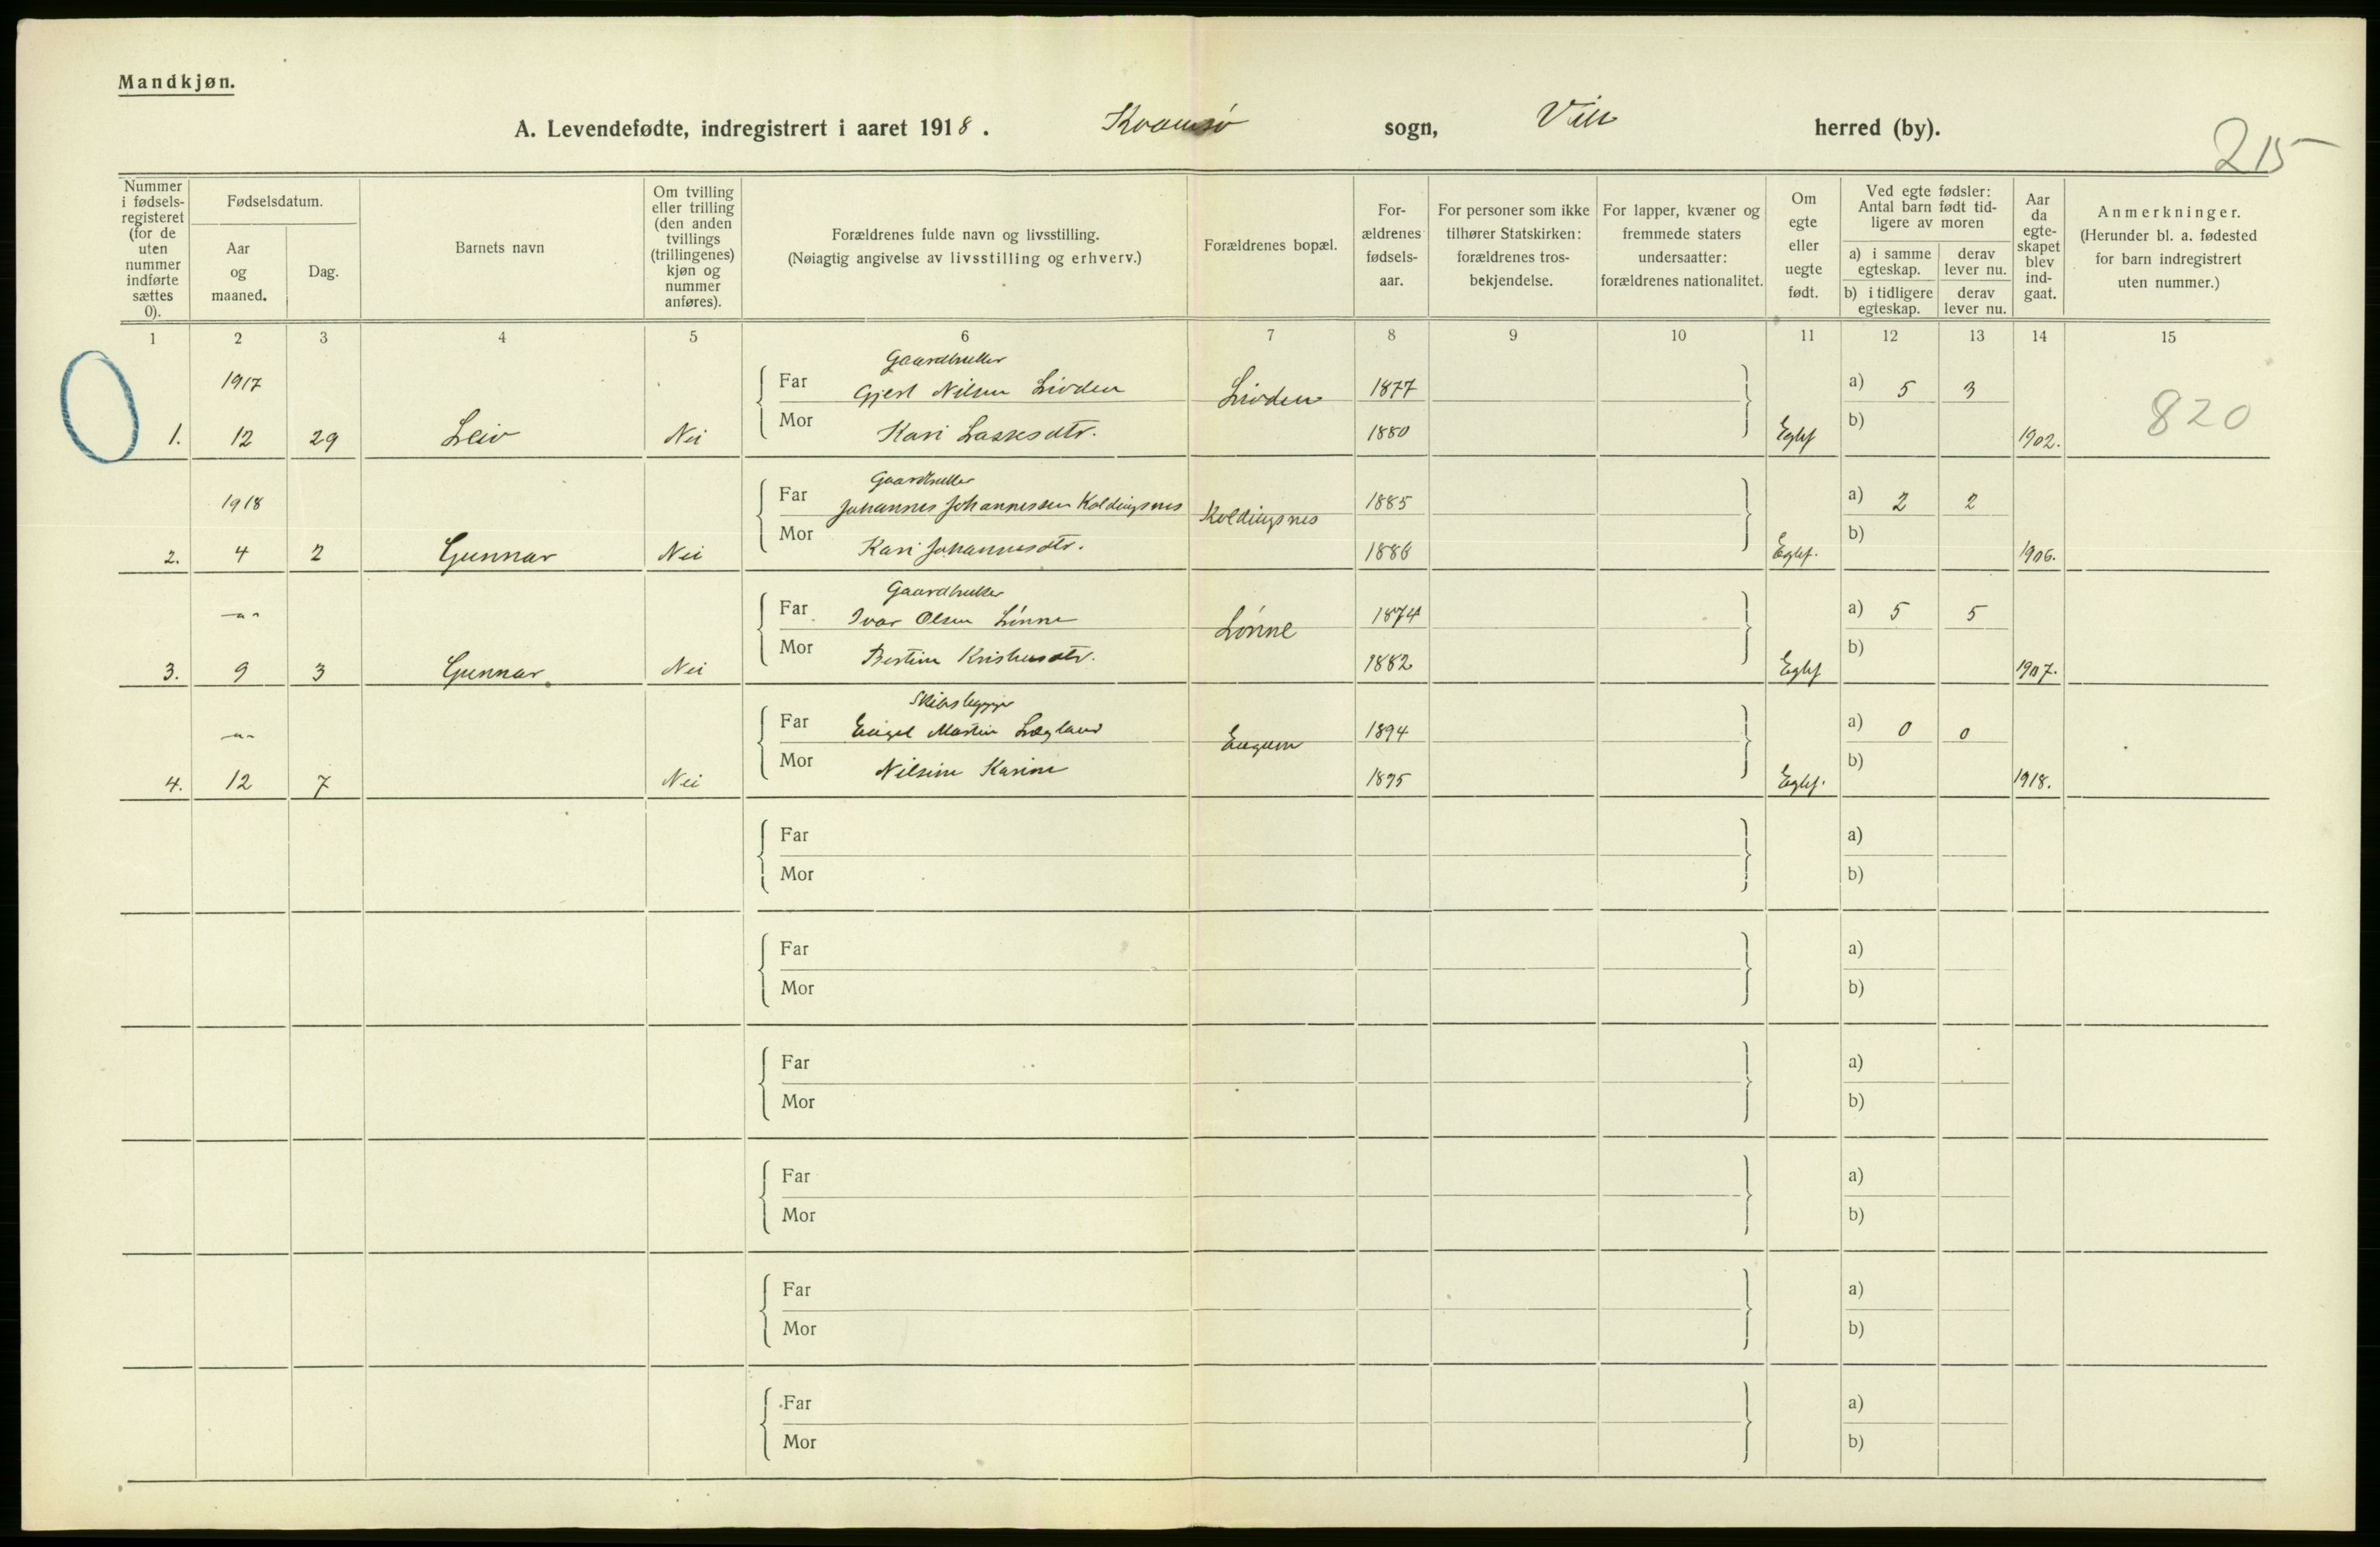 Mandkjøn.
A. Levendefødte, indregistrert i aaret 1918. Kvamsø sogn, Vik herred (by).
215
Nummer i fødsels-registeret (for de uten nummer indførte sættes 0).
Fødselsdatum.
Aar og maaned.
Dag.
Barnets navn
Om tvilling eller trilling (den anden tvillings (trillingenes) kjøn og nummer anføres).
Forældrenes fulde navn og livsstilling.
(Nøiagtig angivelse av livsstilling og erhverv.)
Forældrenes bopæl.
For-ældrenes fødsels-aar.
For personer som ikke tilhører Statskirken: forældrenes tros-bekjendelse.
For lapper, kvæner og fremmede staters undersaatter: forældrenes nationalitet.
Om egte eller uegte født.
Ved egte fødsler: Antal barn født tid-ligere av moren
a) i samme egteskap.
derav lever nu.
b) i tidligere egteskap.
derav lever nu.
Aar da egte-skapet blev ind-gaat.
Anmerkninger.
(Herunder bl. a. fødested for barn indregistrert uten nummer.)
1 2 3 4 5 6 7 8 9 10 11 12 13 14 15
Gaardbruker
1917 Far Gjert Nilsen Livden Livden 1877 a) 5 3
1. 12 29 Leiv Nei Mor Kari Lassesdtr. 1880 Egte f b) 1902. 820
Gaardbruker
1918 Far Johannes Johannessen Koldingsnes Koldingsnes 1885 a) 2 2
2. 4 2 Gunnar Nei Mor Kari Johannesdtr. 1886 Egte f. b) 1906.
Gaardbruker
—"— Far Ivar Olsen Lønne Lønne 1874 a) 5 5
3. 9 3 Gunnar Nei Mor Bertine Kristensdtr. 1882 Egte f b) 1907.
Skibsbygger
—"— Far Engel Martin Lægland Engum 1894 a) 0 0
4. 12 7 Nei Mor Nilsine Karine 1895 Egte f. b) 1918.
Far a)
Mor b)
Far a)
Mor b)
Far a)
Mor b)
Far a)
Mor b)
Far a)
Mor b)
Far a)
Mor b)